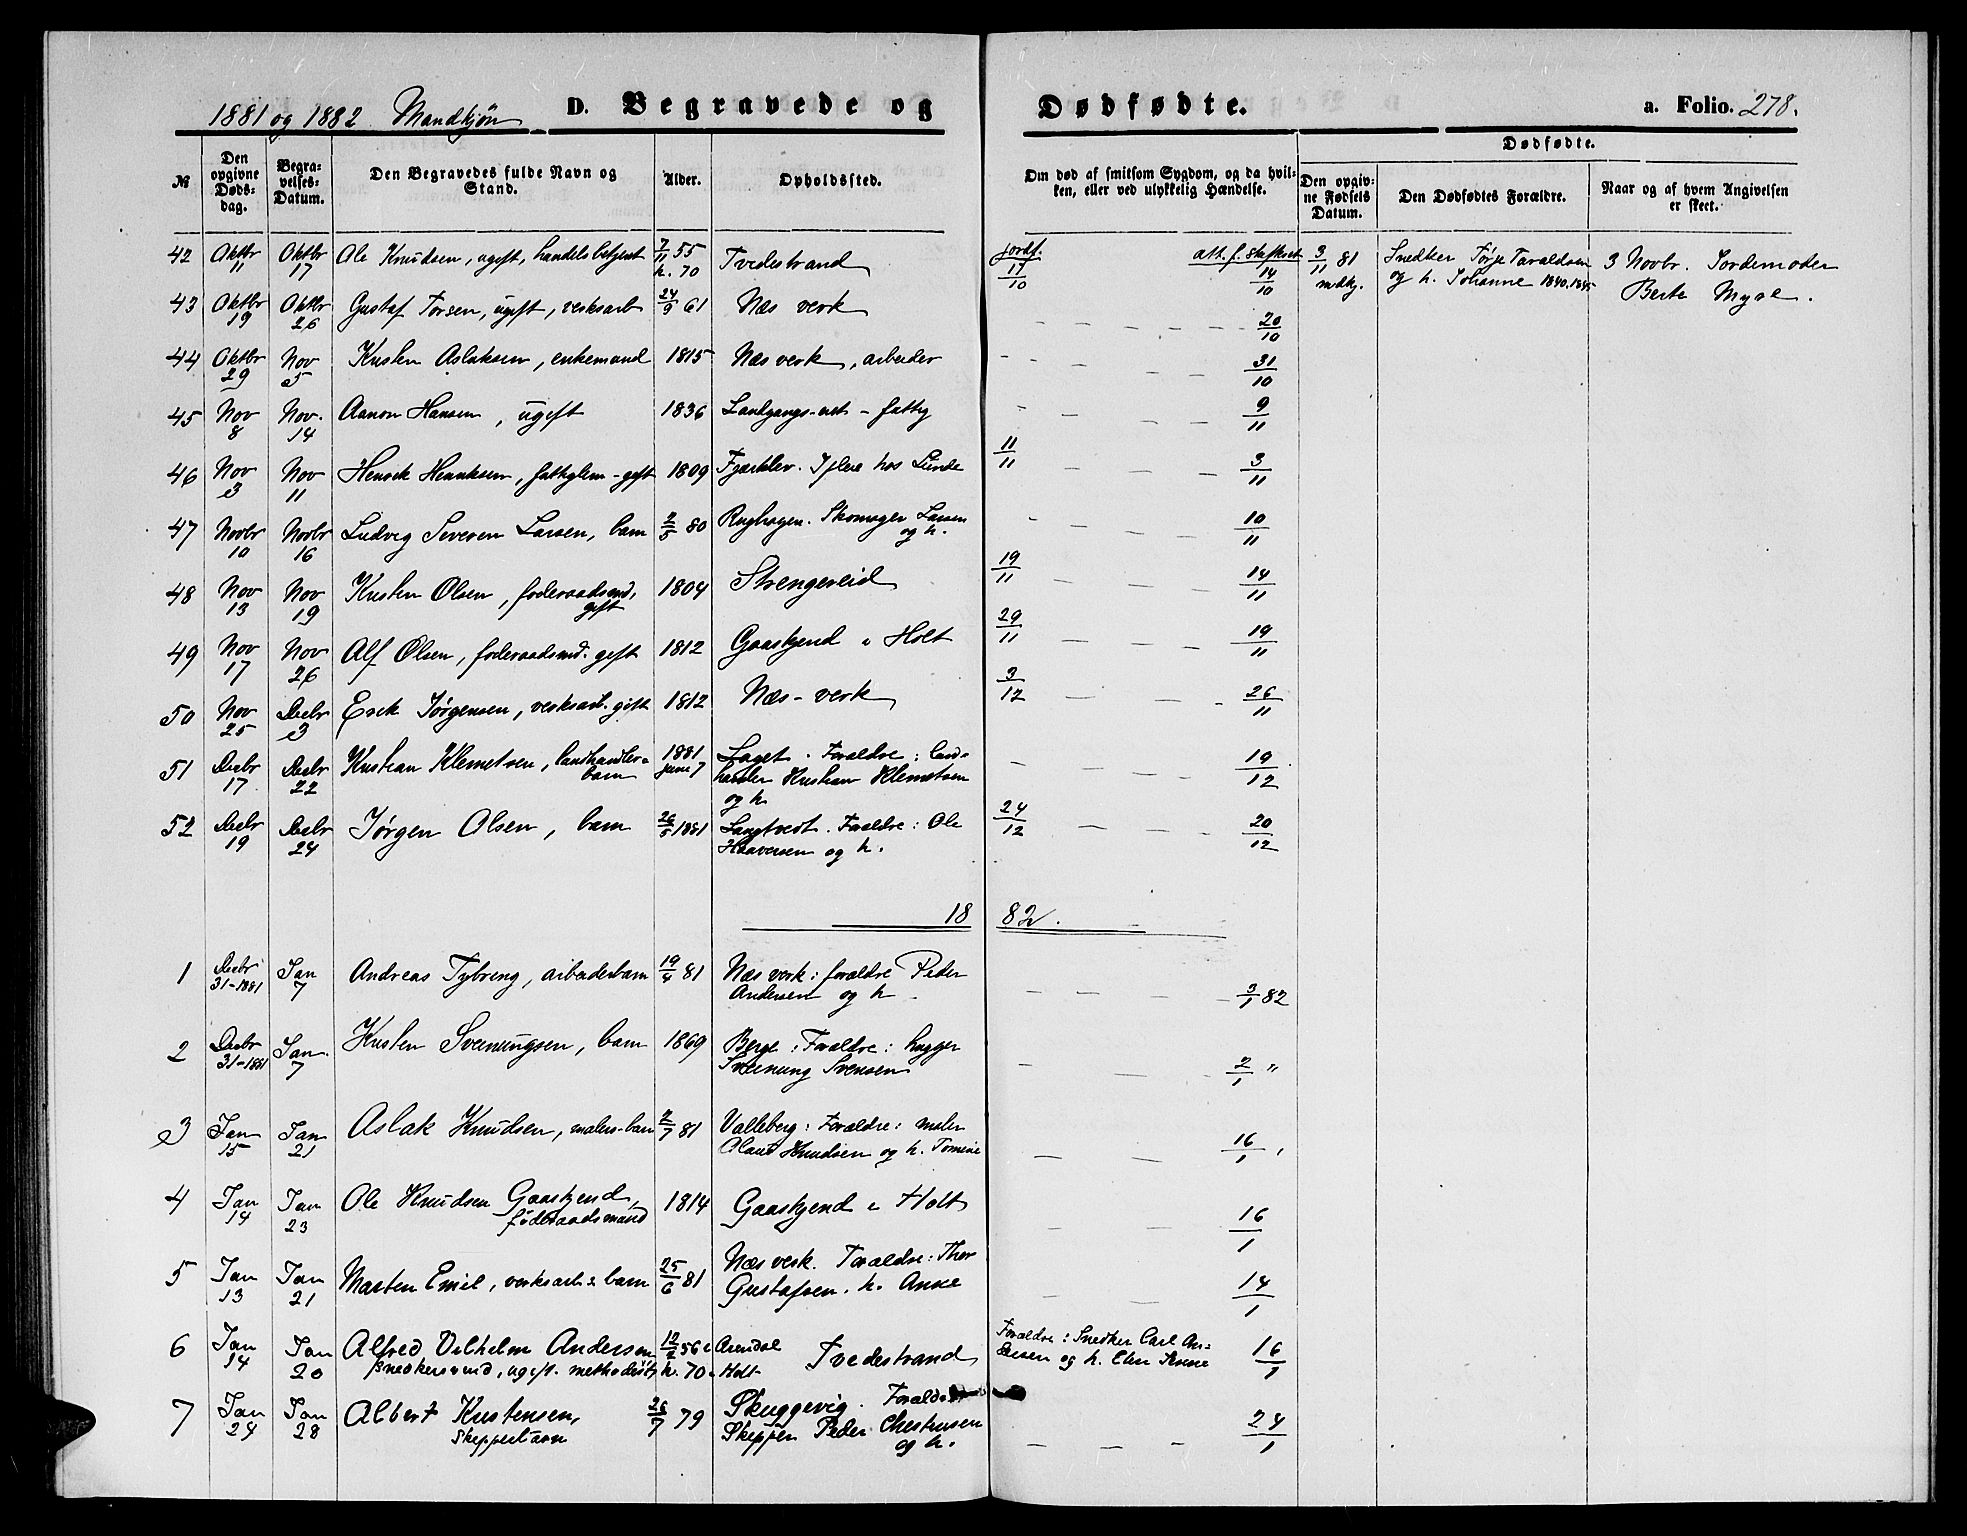 1881 og 1882 Mandkjøn D. Begravede og Dødfødte. a. Folio. 278.
Dødfødte.
№ Den opgivne Døds-dag. Begra-velses-Datum. Den Begravedes fulde Navn og Stand. Alder. Opholdssted. Om død af smitsom Sygdom, og da hvil-ken, eller ved ulykkelig Hændelse. Den opgiv-ne Fødsels Datum. Den Dødfødtes Forældre. Naar og af hvem Angivelsen er skeet.
42 Oktbr 11 Oktbr 17 Ole Knudsen, ugift, handelsbetjent 7/11 55 k. 70 Tvedestrand jordf. 17/10 att. f. skifteret 14/10 3/11 81 mdkj. Snedker Tørje Taraldsen og h. Johanne 1840, 1845 3 Novbr. Jordemoder Berte Myre.
43 Oktbr 19 Oktbr 26 Gustaf Torsen, ugift, verksarb 24/9 61 Næs verk 20/10
44 Oktbr 29 Nov 5 Kristen Aslaksen, enkemand 1815 Næs verk, arbeider 31/10
45 Nov 8 Nov. 14 Aanon Hansen, ugift 1836 - fattig 9/11
46 Nov 3 Nov 11 Henrik Henriksen, fattiglem - gift 1809 11/11 3/11
47 Novbr 10 Novbr 16 Ludvig Severin Larsen, barn 2/5 80 Rughagen. Skomager Larsen og h. 10/11
48 Nov 13 Nov 19 Kristen Olsen, foderaadsmd, gift 1804 Strengereid 19/11 14/11
49 Nov 17 Nov 26 Alf Olsen, foderaadsmd. gift 1812 Gaaskjend i Holt 29/11 19/11
50 Nov 25 Decbr 3 Erik Jørgensen, verksarb. gift 1812 Næs-verk 3/12 26/11
51 Decbr 17. Decbr 22 Kristian Klemetsen, landhandler-barn 1881 juni 7 Laget. Forældre: land-handler Kristian Klemetsen og h 19/12
52 Decbr 19 Decbr 24 Jørgen Olsen, barn 26/5 1881 Langtvedt. Forældre: Ole Haaversen og h. 24/12 20/12
1882.
1 Decbr 31-1881 Jan 7 Andreas Tybring, arbeiderbarn 19/4 81 Næs verk: forældre Peder Andersen og h 3/1 82
2 Decbr 31-1881 Jan. 7 Kristen Sveinungsen, barn 1869 Berge: Forældre: hugger Sveinung Svensen 2/1 "
3 Jan 15 Jan 21 Aslak Knudsen, malers-barn 2/7 81 Valleberg: Forældre: maler Olaus Knudsen og h. Tomine 16/1
4 Jan 14 Jan 23 Ole Knudsen Gaaskjend, føderaadsmand 1814 Gaaskjend i Holt 16/1
5 Jan 13 Jan 21 Marten Emil, verksarb.s barn 25/6 81 Næs verk. Forældre: Thor Gustafsen. h. Anne 14/1
6 Jan 14 Jan 20 Alfred Vilhelm Andersen snedkersvend, ugift. methodist, 12/2 56 i Arendal k. 70. Holt Tvedestrand Forældre: Snedker Carl An-dersen og h. 16/1
7 Jan 24 Jan 28 Albert Kristensen, skipperbarn 26/7 79 Skuggevig. Forældre: Skipper Peder Christensen og h. 24/1